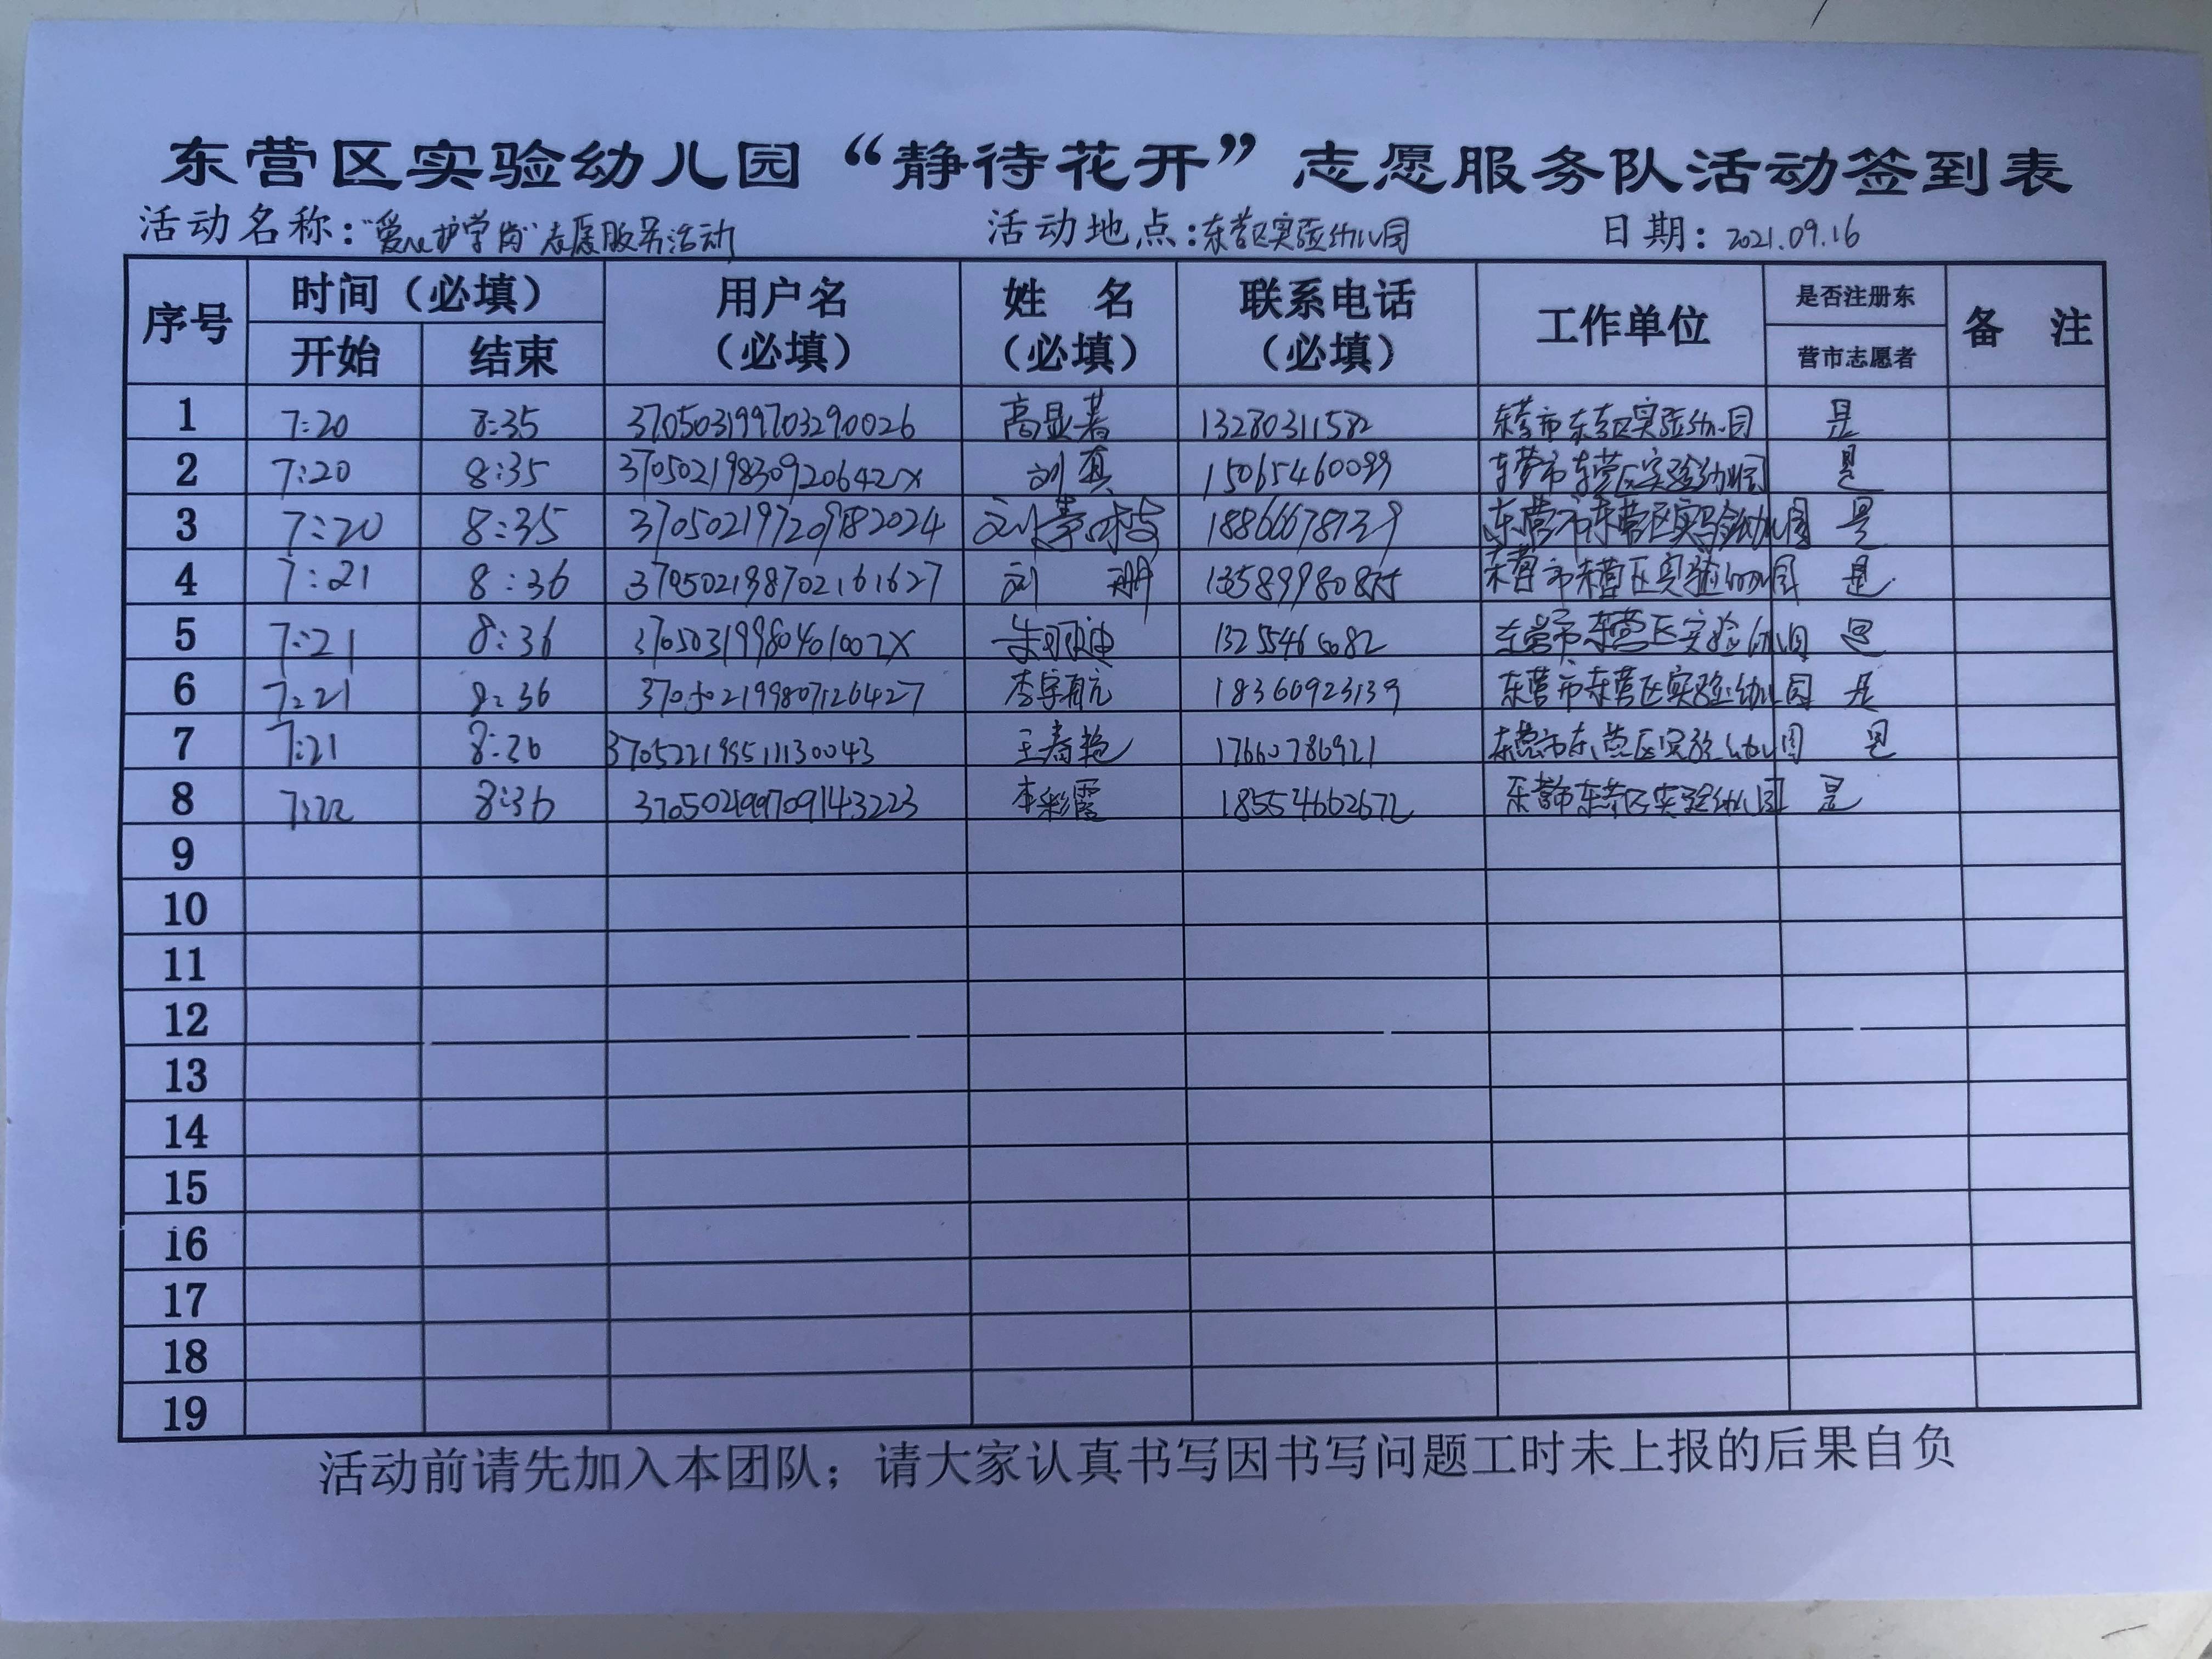 东营区实验幼儿园“静待花开”志愿服务队活动签到表
活动名称：“爱心护学岗”志愿服务活动 活动地点：东营区实验幼儿园 日期：2021.09.16
序号 时间（必填） 用户名（必填） 姓 名（必填） 联系电话（必填） 工作单位 是否注册东营市志愿者 备 注
开始 结束
1 7:20 8:35 370503199703290026 高显著 13280311582 东营市东营区实验幼儿园 是
2 7:20 8:35 37050219830920642X 刘真 15065460099 东营市东营区实验幼儿园 是
3 7:20 8:35 370502197209182024 刘 18866678739 东营市东营区实验幼儿园 是
4 7:21 8:36 370502198702161627 刘 珊 东营市东营区实验幼儿园 是
5 7:21 8:36 37050319980401002X 朱 东营市东营区实验幼儿园 是
6 7:21 8:36 370502199807126427 李宇航 18366923139 东营市东营区实验幼儿园 是
7 7:21 8:36 370522199511130043 王春艳 17660786921 东营市东营区实验幼儿园 是
8 7:22 8:36 370502199709143223 李彩霞 18554662672 东营市东营区实验幼儿园 是
9
10
11
12
13
14
15
16
17
18
19
活动前请先加入本团队；请大家认真书写因书写问题工时未上报的后果自负